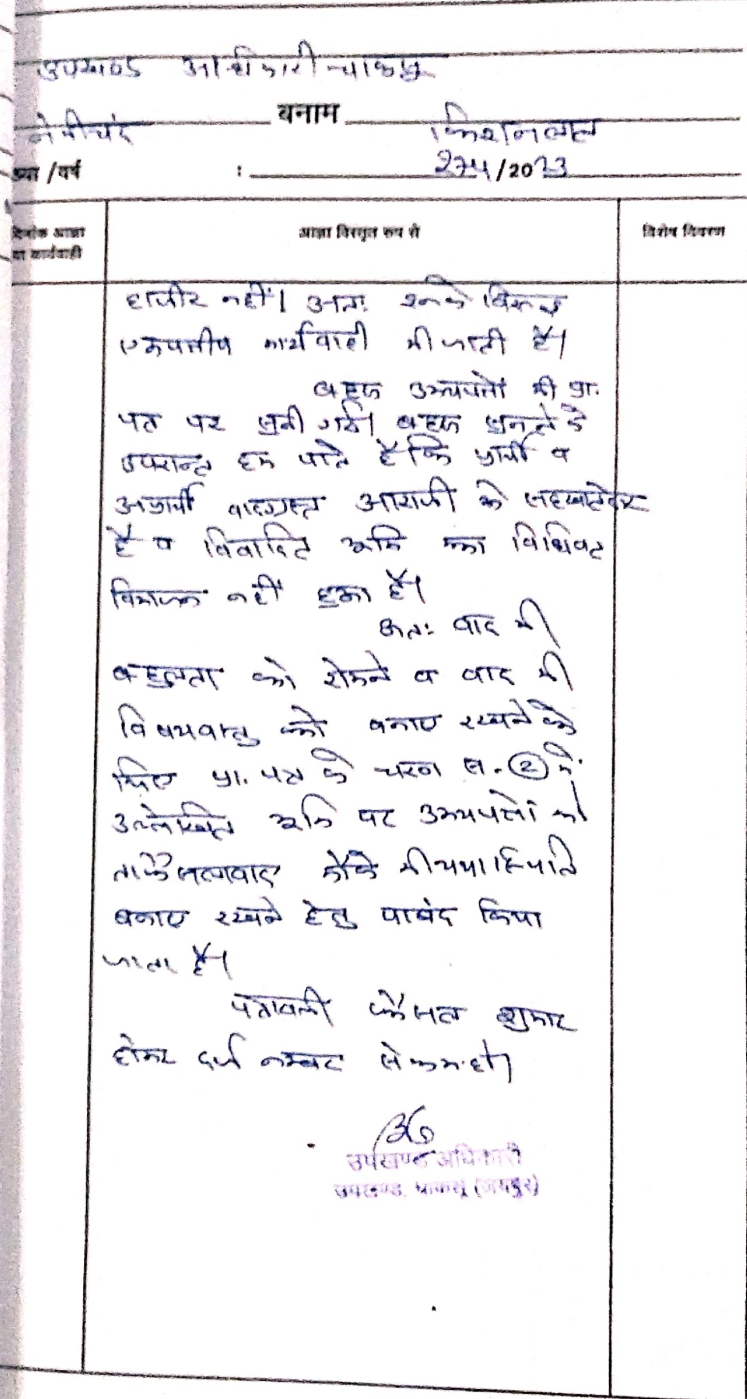 उपखण्ड अधिकारी चाकसू
नेमीचंद बनाम किशनलाल
ख्या /वर्ष : 274/2023
दिनांक आज्ञा या कार्यवाही
आज्ञा विस्तृत रूप से
विशेष विवरण
हाजीर नहीं। अतः उनके विरूद्ध
एकपक्षीय कार्यवाही की जाती है।
बहस उभयपक्षों की प्रा.
पत्र पर सुनी गई। बहस सुनने के
उपरान्त हम पाते है कि प्रार्थी व
अप्रार्थी वादग्रस्त आराजी के सहखातेदार
है व विवादित भूमि का विधिवत
विभाजन नहीं हुआ है।
अतः वाद की
बहुलता को रोकने व वाद की
विषयवस्तु को बनाए रखने के
लिए प्रा. पत्र के चरण स. 2 में
उल्लेखित भूमि पर उभयपक्षों को
ताफैसलावाद मौके की यथास्थिति
बनाए रखने हेतु पाबंद किया
जाता है।
पत्रावली फैसल शुमार
होकर दर्ज नम्बर से कम हो।
उपखण्ड अधिकारी
उपखण्ड, चाकसू (जयपुर)